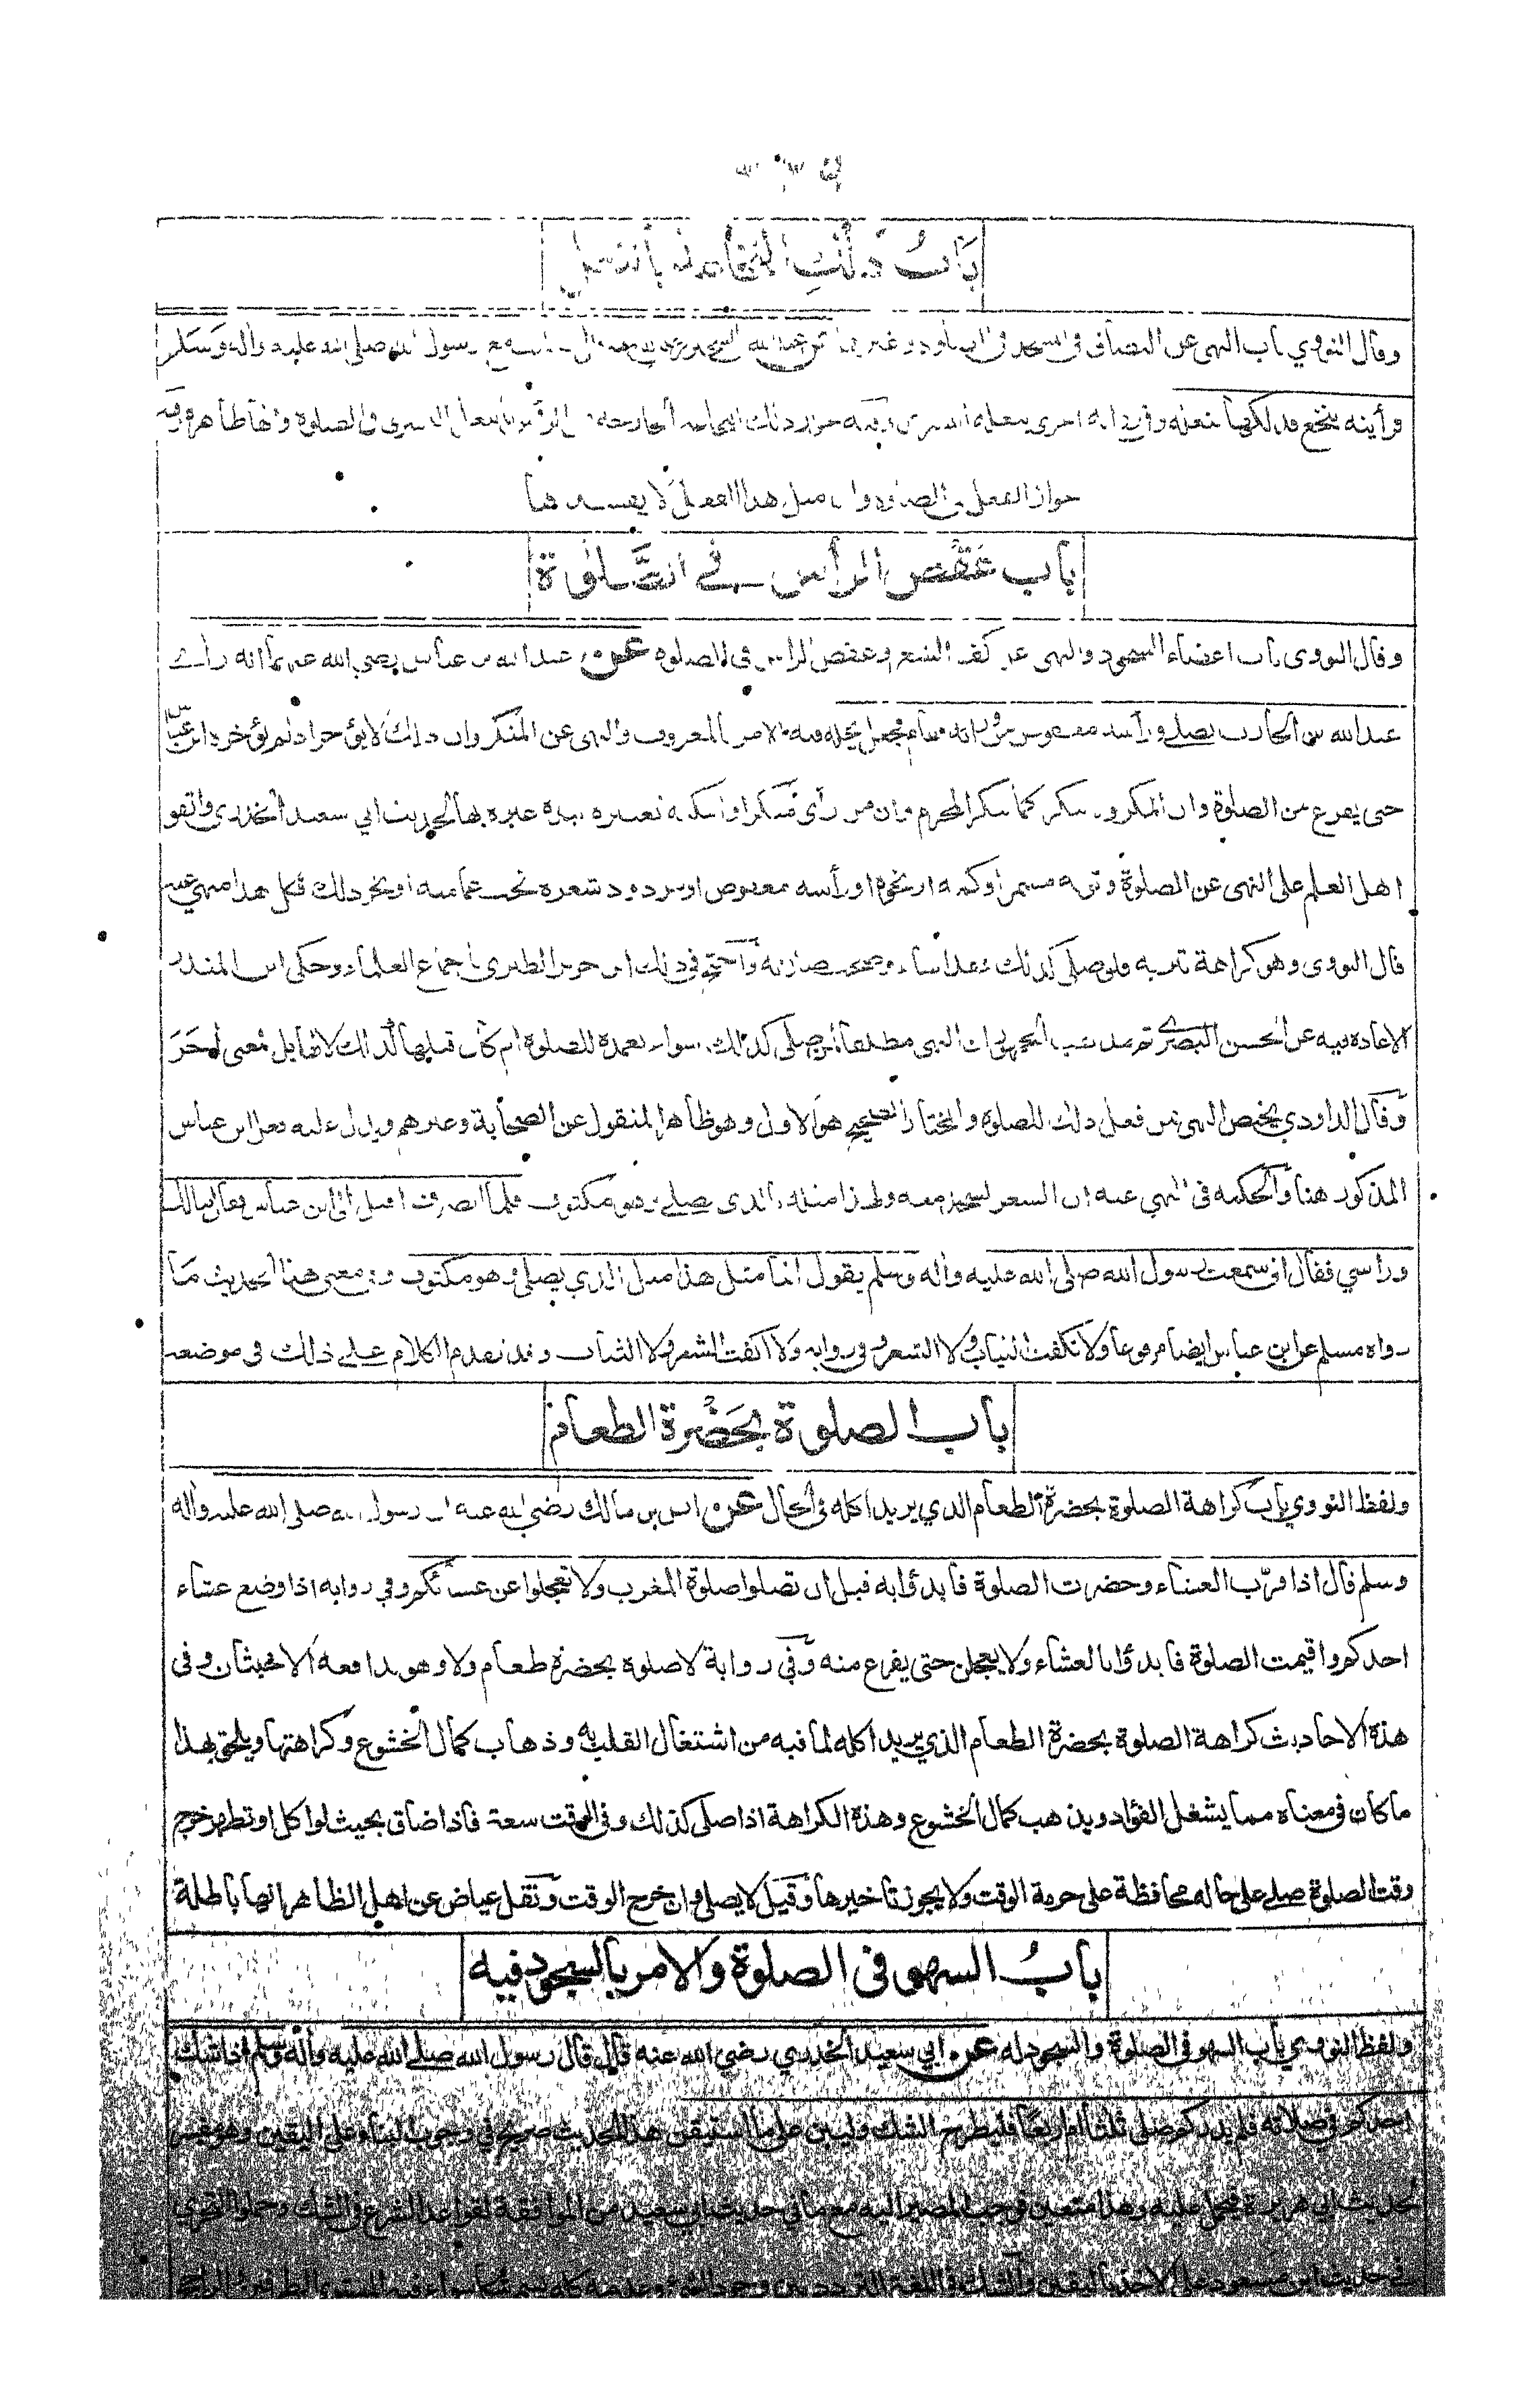 باب دلك النخاعة بالنعل
وقال النووي باب النهى عن البصاق فى المسجد فى الصلوة وغيرها عن عبد الله رسول الله صلى الله عليه وأله وسلم
فرأيته تنخع فدلكها بنعله وفي رواية اخرى بنعله اليسرى وفيه جواز ذلك اليسرى فى الصلوة وانها طاهرة وفيه
جواز الفعل فى الصلوة وان مثل هذا الفعل لا يفسدها
باب عقص الرأس في الصلوة
وقال النووى باب اعضاء السجود والنهى عن كف الشعر وعقص الراس فى الصلوة عن عبد الله بن عباس رضي الله عنهما انه رأى
عبد الله بن الحارث يصلى ورأسه معقوص من ورائه فقام فجعل يحله فيه الامر بالمعروف والنهى عن المنكر وان ذلك لا يؤخر اذ لم يؤخره ابن عباس
حتى يفرغ من الصلوة وان المكروه ينكر كما ينكر المحرم وان من رأى منكرا وامكنه تغييره بيده غيره بها لحديث ابي سعيد الخدرى واتفق
اهل العلم على النهى عن الصلوة وثوبه مشمر أو كمه او نحوه او رأسه معقوص او مردود شعره تحت عمامته او نحو ذلك فكل هذا منهي عنه
قال النووى وهو كراهة تنزيه فلو صلى كذلك فقد اساء وصحت صلاته واحتج فى ذلك ابن جرير الطبرى باجماع العلماء وحكى ابن المنذر
الاعادة فيه عن الحسن البصرى ثم مذهب الجمهور ان النهى مطلقا لمن صلى كذلك سواء تعمده للصلوة ام كان قبلها كذلك لا لها بل لمعنى أخر
وقال الداودي يختص النهى بمن فعل ذلك للصلوة والمختار الصحيح هو الاول وهو ظاهر المنقول عن الصحابة وغيرهم ويدل عليه فعل ابن عباس
المذكور هنا والحكمة فى النهي عنه ان الشعر يسجد معه ولهذا مثله بالذى يصلى وهو مكتوف فلما انصرف اقبل الى ابن عباس فقال مالك
وراسي فقال انى سمعت رسول الله صلى الله عليه وأله وسلم يقول انما مثل هذا مثل الذي يصلى وهو مكتوف وفى معنى هذا الحديث ما
رواه مسلم عن ابن عباس ايضا مرفوعا ولا نكفت الثياب ولا الشعر وفى رواية ولا اكفت الشعر ولا الثياب وقد تقدم الكلام على ذلك فى موضعه
باب الصلوة بحضرة الطعام
ولفظ النووي باب كراهة الصلوة بحضرة الطعام الذي يريد اكله فى الحال عن انس بن مالك رضي الله عنه ان رسول الله صلى الله عليه وأله
وسلم قال اذا قرّب العشاء وحضرت الصلوة فابدؤا به قبل ان تصلوا صلوة المغرب ولا تعجلوا عن عشائكم وفي رواية اذا وضع عشاء
احدكم واقيمت الصلوة فابدؤا بالعشاء ولا يعجلن حتى يفرغ منه وفي رواية لا صلوة بحضرة طعام ولا وهو يدافعه الاخبثان وفى
هذة الاحاديث كراهة الصلوة بحضرة الطعام الذي يريد اكله لما فيه من اشتغال القلب به وذهاب كمال الخشوع وكراهتها ويلحق بهذا
ما كان فى معناه مما يشغل الفؤاد ويذهب كمال الخشوع وهذه الكراهة اذا صلى كذلك وفى الوقت سعة فاذا ضاق بحيث لو اكل او تطهر خرج
وقت الصلوة صلى على حاله محافظة على حرمة الوقت ولا يجوز تأخيرها وقيل لا يصلى وان خرج الوقت ونقل عياض عن اهل الظاهر انها باطلة
باب السهو فى الصلوة والامر بالسجود فيه
ولفظ النووي باب السهو فى الصلوة والسجود له عن ابي سعيد الخدري رضي الله عنه قال قال رسول الله صلى الله عليه وأله وسلم اذا شك
احدكم في صلاته فلم يدر كم صلى ثلثا ام اربعا فليطرح الشك وليبن على ما استيقن هذا الحديث صريح في وجوب البناء على اليقين وهو مفسر
لحديث ابي هريرة فيحمل عليه وهذا متعين فوجب المصير اليه مع ما في حديث ابي سعيد من الموافقة لقواعد الشرع فى الشك وحملوا التحرى
في حديث ابن مسعود على الاخذ باليقين والشك فى اللغة التردد بين وجود الشئ وعدمه كله يسمى شكا سواء فيه المستوى الطرفين والراجح